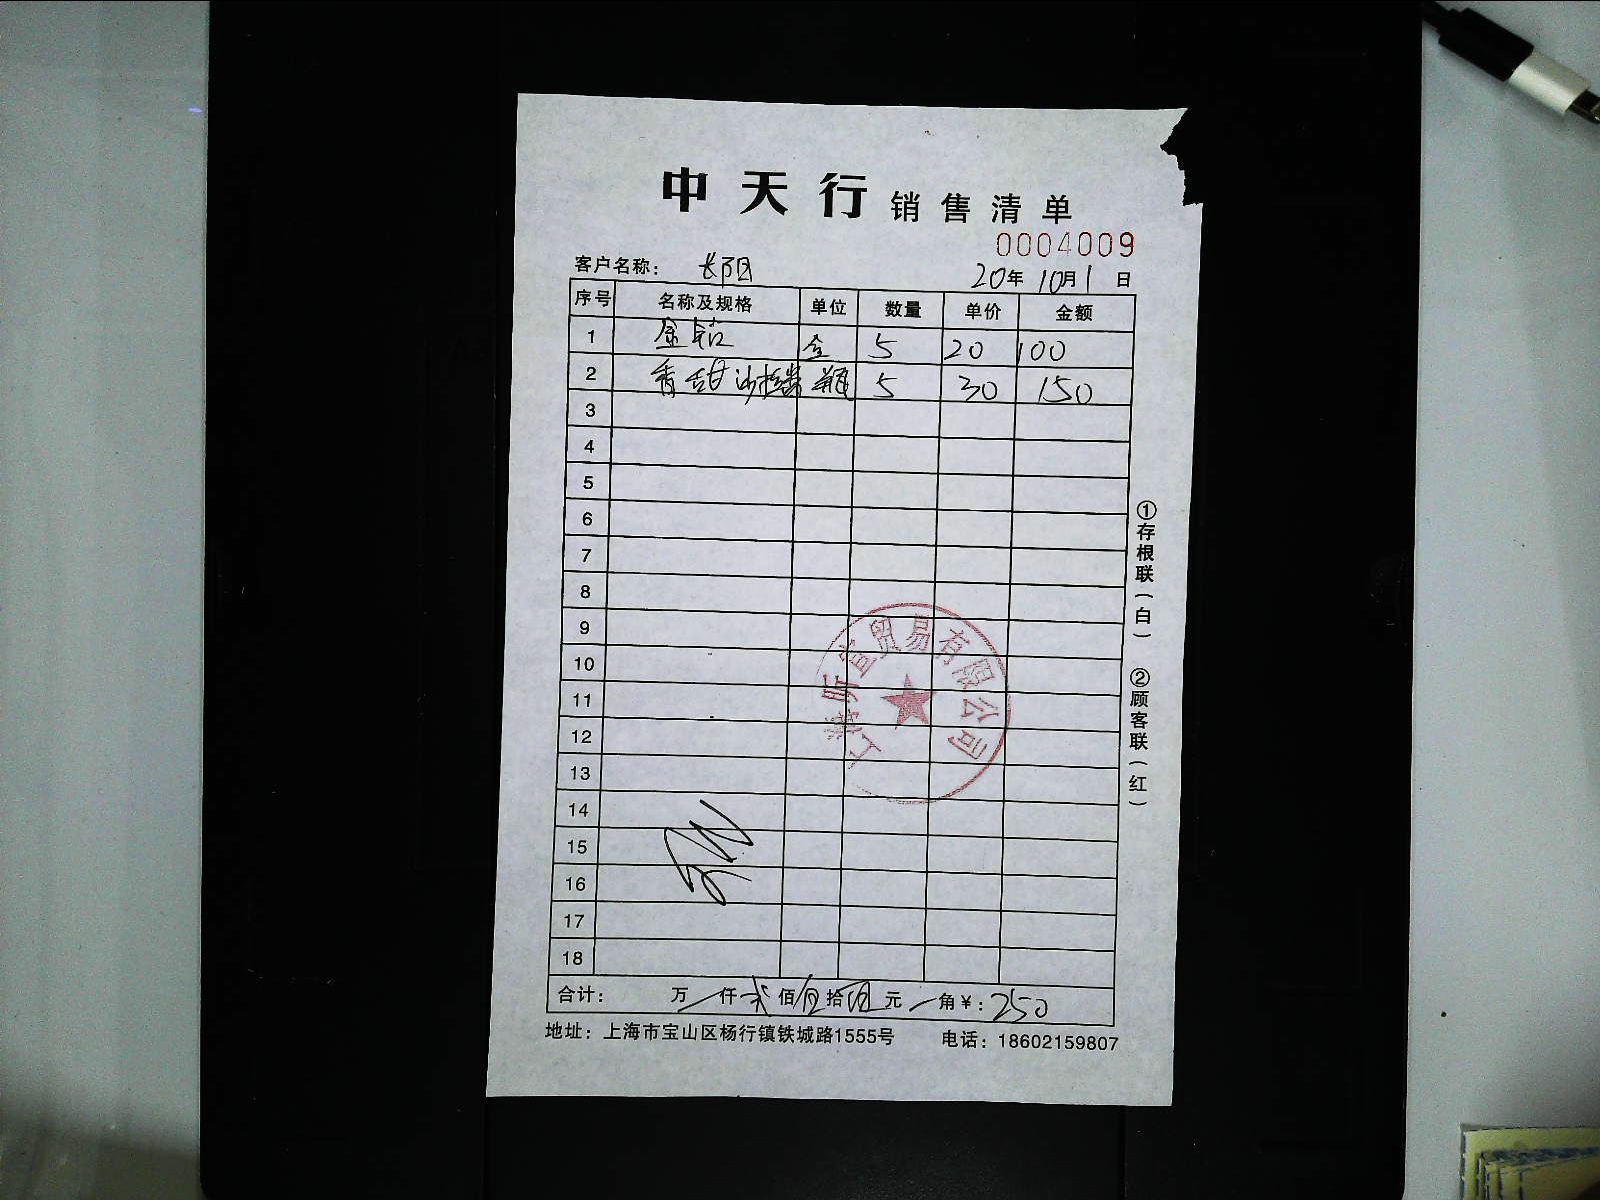 中天行 销售清单
0004009
客户名称： 长阳 20年10月1日
序号 名称及规格 单位 数量 单价 金额
1 金钻 仝 5 20 100
2 香甜沙拉酱 瓶 5 30 150
3
4
5
6
7
8
9
10
11
12
13
14
15
16
17
18
合计： 万 / 仟 贰 佰 伍 拾 元 / 角 ￥: 250
地址：上海市宝山区杨行镇铁城路1555号 电话：18602159807
①存根联（白） ②顾客联（红）
宜贸易有限公司